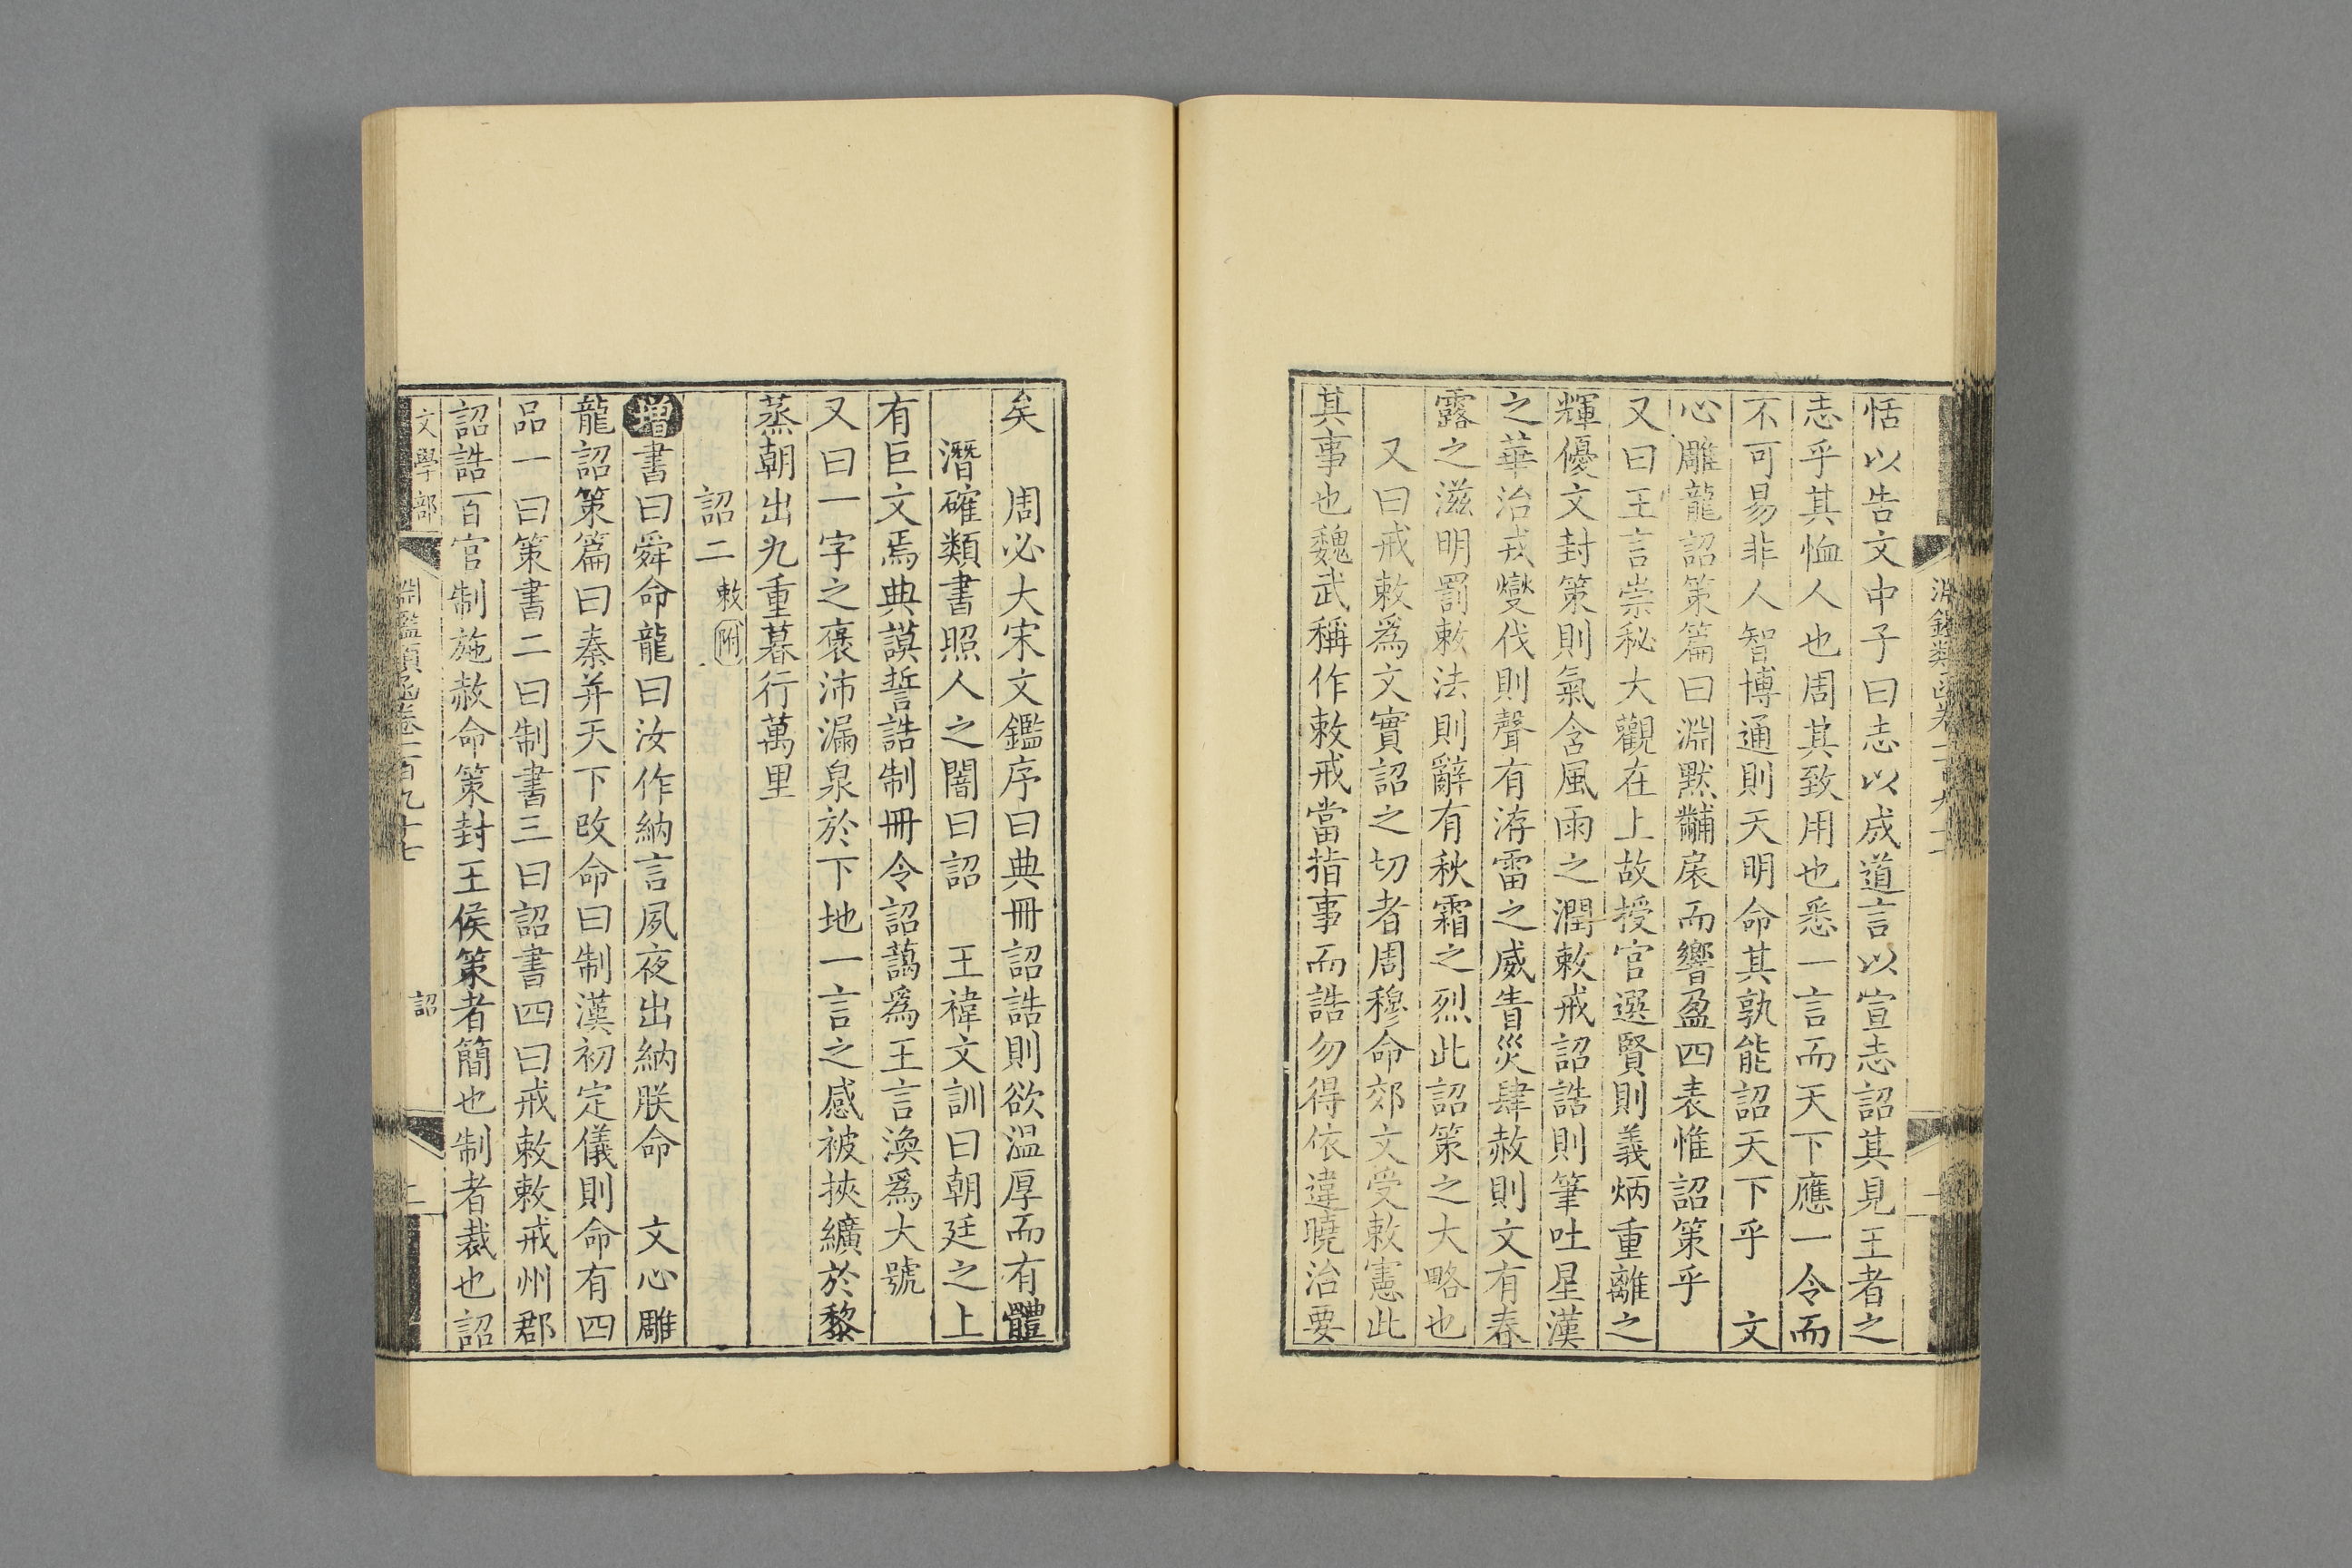 恬以告文中子曰志以成道言以宣志詔其見王者之
志乎其恤人也周其致用也悉一言而天下應一令而
不可易非人智博通則天明命其孰能詔天下乎　文
心雕龍詔策篇曰淵黙黼扆而響盈四表惟詔策乎
又曰王言崇秘大觀在上故授官選賢則義炳重離之
輝優文封策則氣含風雨之潤敕戒詔誥則筆吐星漢
之華治戎燮伐則聲有洊雷之威眚災肆赦則文有春
露之滋明罰敕法則辭有秋霜之烈此詔策之大略也
又曰戒敕為文實詔之切者周穆命郊父受敕憲此
其事也魏武稱作敕戒當指事而誥勿得依違曉治要
矣　周必大宋文鑑序曰典冊詔誥則欲溫厚而有體
潛確類書照人之闇曰詔　王褘文訓曰朝廷之上
有巨文焉典謨誓誥制冊令詔藹為王言渙為大號
又曰一字之褒沛漏泉於下地一言之感被挾纊於黎
蒸朝出九重暮行萬里
詔二　敕附
增書曰舜命龍曰汝作納言夙夜出納朕命　文心雕
龍詔策篇曰秦并天下改命曰制漢初定儀則命有四
品一曰策書二曰制書三曰詔書四曰戒敕敕戒州郡
詔誥百官制施赦命策封王侯策者簡也制者裁也詔
文學部　淵鑑類函卷一百九十七　詔　二